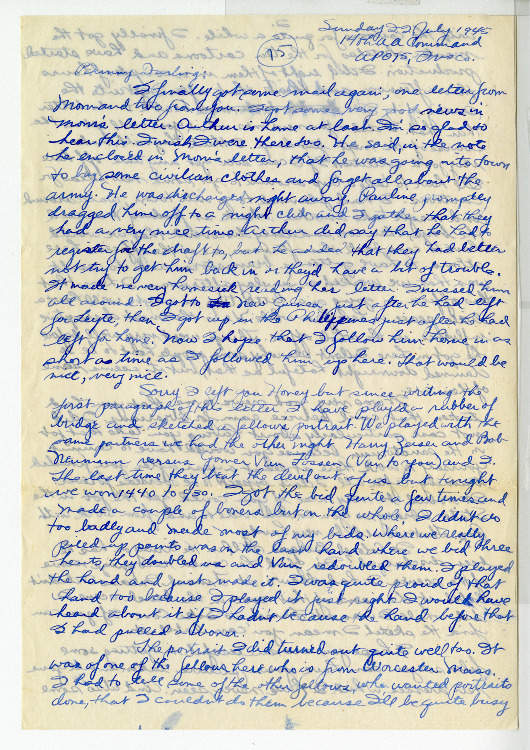 Sunday 22 July 1945
14th AA Command
APO 75, Frisco.
95
Bunny Darling;
I finally got some mail again, one letter from
Mom and two from you. I got some very hot news in
Mom's letter. Arthur is home at last. I'm so glad to
hear this. I wish I were there too. He said, in the note
he enclosed in Mom's letter, that he was going into town
to buy some civilian clothes and forget all about the
army. He was discharged right away. Pauline promptly
dragged him off to a night club and I gather that they
had a very nice time. Arthur did say that he had to
register for the draft too, but that they had better
not try to get him back in or they'd have a bit of trouble.
It made me very homesick reading her letter. I missed him
all around. I got to New Guinea just after he had left
for Leyte, then I got up in the Philippines just after he had
left for home. Now I hope that I follow him home in as
short as time as I followed him up here. That would be
nice, very nice.
Sorry I left you Honey but since writing the
first paragraph of this letter I have played a rubber of
bridge and sketched a fellows portrait. We played with the
same partners we had the other night Harry Zaser and Bob
Neumann versus Gomer Van Fossen (Van to you) and I.
The last time they beat the devil out of us but tonight
we won 1440 to 930. I got the bid quite a few times and
made a couple of boners but on the whole I didn't do
too badly and made most of my bids. Where we really
piled up points was in the last hand where we bid three
hearts, they doubled us and Van redoubled them. I played
the hand and just made it. I was quite proud of that
hand too because I played it just right. I would have
heard about it if I hadn't because the hand before that
I had pulled a boner.
The portrait I did turned out quite well too. It
was of one of the fellows here who is from Worcester, Mass.
I had to tell some of the other fellows, who wanted portraits
done, that I couldn't do them because I'll be quite busy